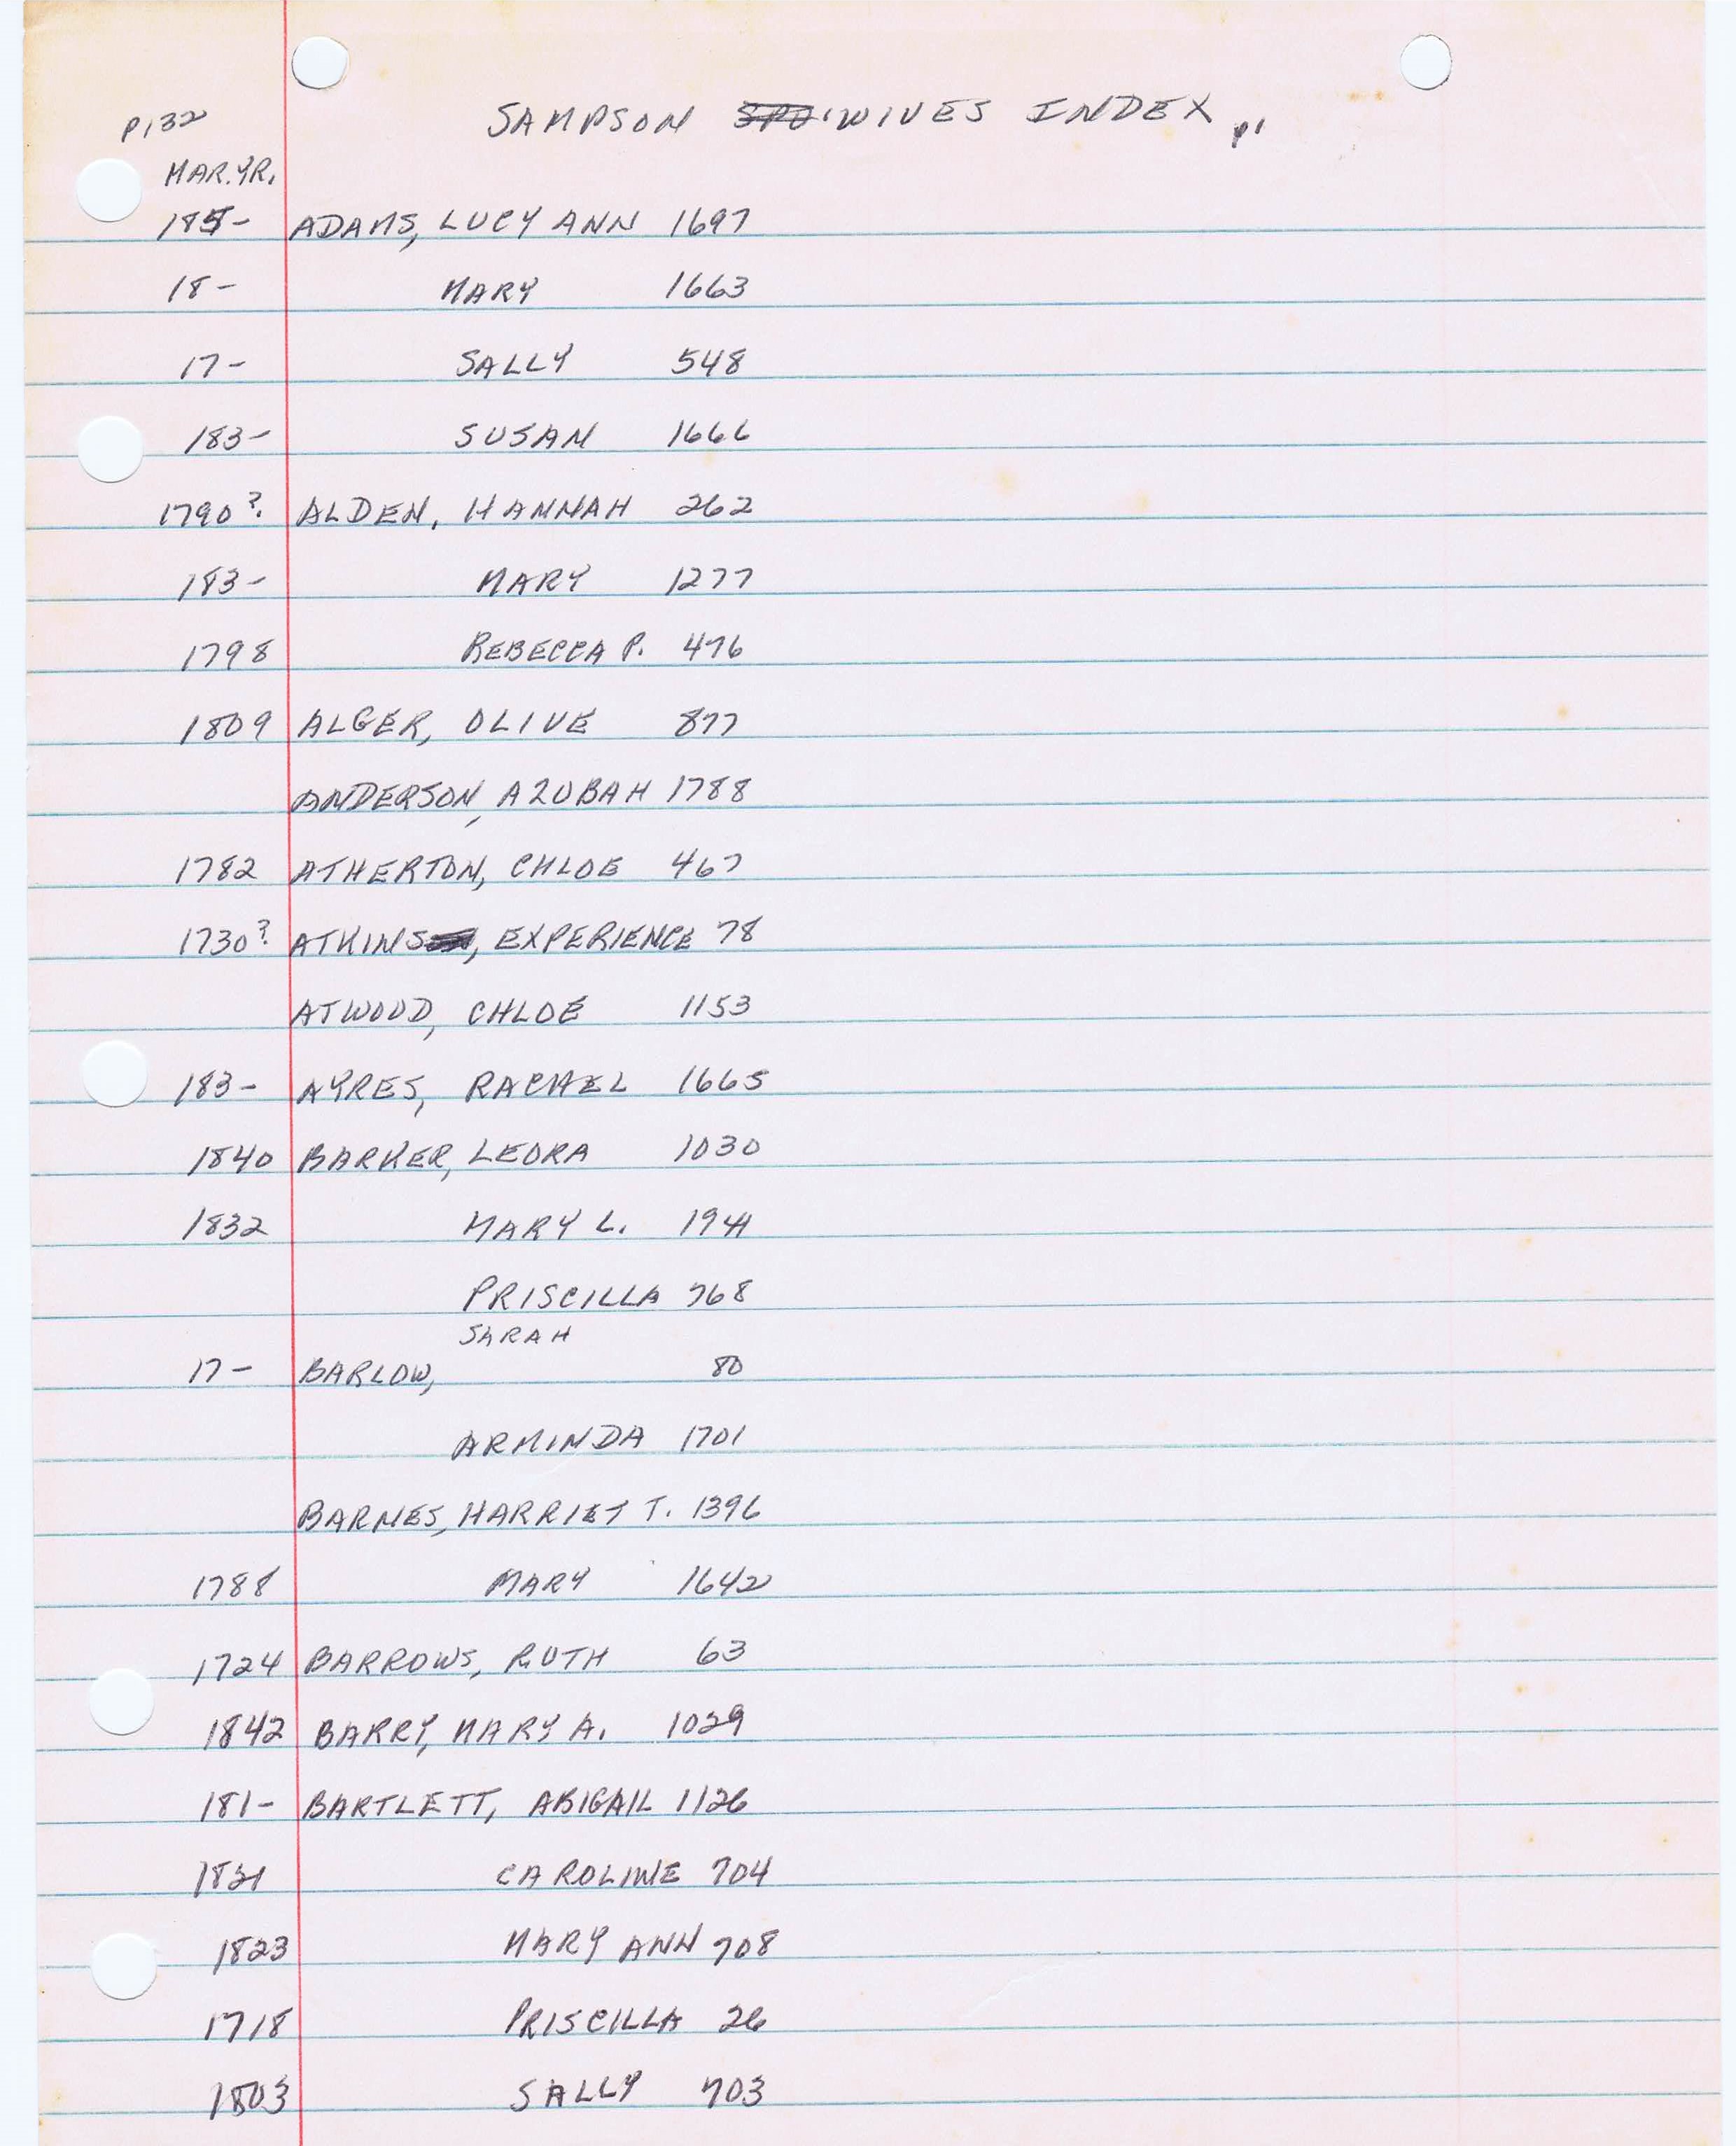 P132 SAMPSON WIVES INDEX p1
MAR.YR.
185- ADAMS, LUCY ANN 1697
18- MARY 1663
17- SALLY 548
183- SUSAN 1666
1790? ALDEN, HANNAH 262
183- MARY 1277
1798 REBECCA P. 476
1809 ALGER, OLIVE 877
ANDERSON, AZUBAH 1788
1782 ATHERTON, CHLOE 467
1730? ATKINS, EXPERIENCE 78
ATWOOD, CHLOE 1153
183- AYRES, RACHEL 1665
1840 BARKER, LEORA 1030
1832 MARY L. 1941
PRISCILLA 768
SARAH
17- BARLOW, 80
ARMINDA 1701
BARNES, HARRIET T. 1396
1788 MARY 1642
1724 BARROWS, RUTH 63
1842 BARRY, MARY A. 1029
181- BARTLETT, ABIGAIL 1126
1821 CAROLINE 704
1823 MARY ANN 708
1718 PRISCILLA 26
1803 SALLY 703